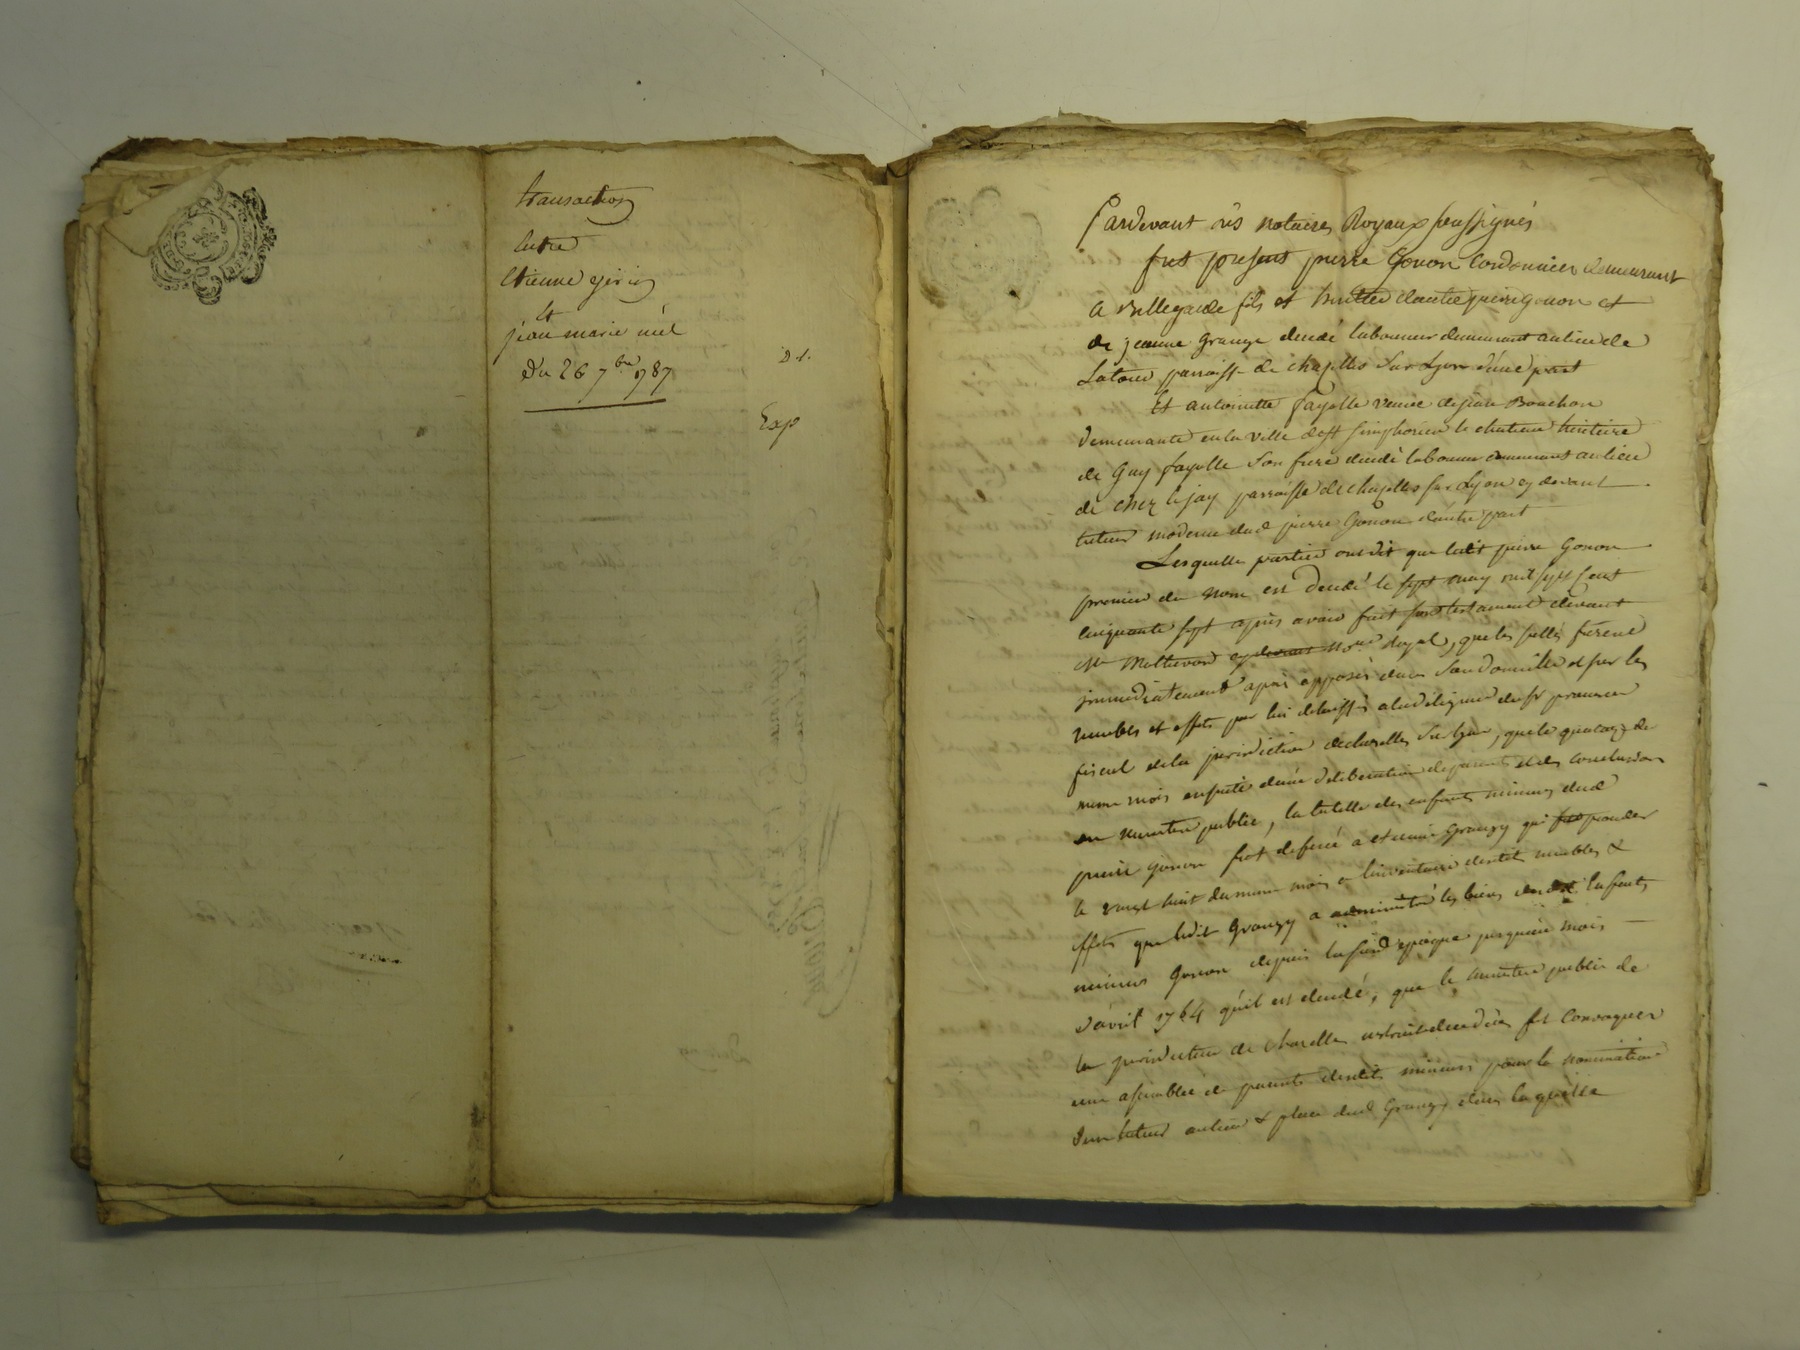 transaction
Entre
Etienne
Et
jean marie niel
Du 26 7bre 1787
D 1.
Exp
Pardevant nës Notaires Royaux soussignés
fut present pierre Gonon Cordonnier demeurant
a Bellegarde fils et heritier dautre pierre gonon et
de jeanne Grange decedé laboureur demeurant au lieu de
Latour parroisse de chazelles Sur Lyon d'une part
Et antoinette fayolle veuve de jean Bouchon
demeurante en la ville de st simphorien le chateau heritiere
de Guy fayolle Son frere decedé laboureur demeurant au lieu
de chez le jay parroisse de chazelles sur Lyon cy devant
tuteur moderne dud pierre Gonon d'autre part
Lesquelles parties ont dit que ledit pierre Gonon
premier du nom est decedé le sept may mil sept cent
cinquante sept apres avoir fait son testament devant
Me cy devant Nore Royal, que les scellés furent
immediatement apres apposés dans Son domicille et sur les
meubles et effets par lui delaissés a la diligence du sr procureur
fiscal de la jurisdiction de chazelles Sur Lyon, que le quatorze du
meme mois ensuite d'une deliberation de parents et des conclusions
du ministere public, la tutelle des enfants mineurs dud
pierre gonon fut deferée a etienne Grangy qui fit proceder
le vingt huit du meme mois a linventaire desdits meubles &
effets que ledit Grangy a administré les biens desd Enfants
mineurs Gonon depuis lad epoque jusqu'au mois
d'avril 1764 qu'il est decedé, que le ministere public de
la jurisdiction de chazelles instruit du deces fit Convoquer
une assemblée de parents desdits mineurs pour la nomination
d'un tuteur au lieu & place dud Grangy dans laquelle